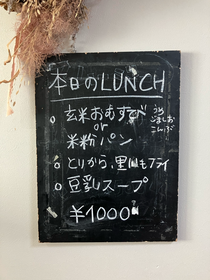 本日のLUNCH
○ 玄米おむすび うめ ごましお こんぶ
or
米粉パン
○ とりから、里いもフライ
○ 豆乳スープ
¥1000